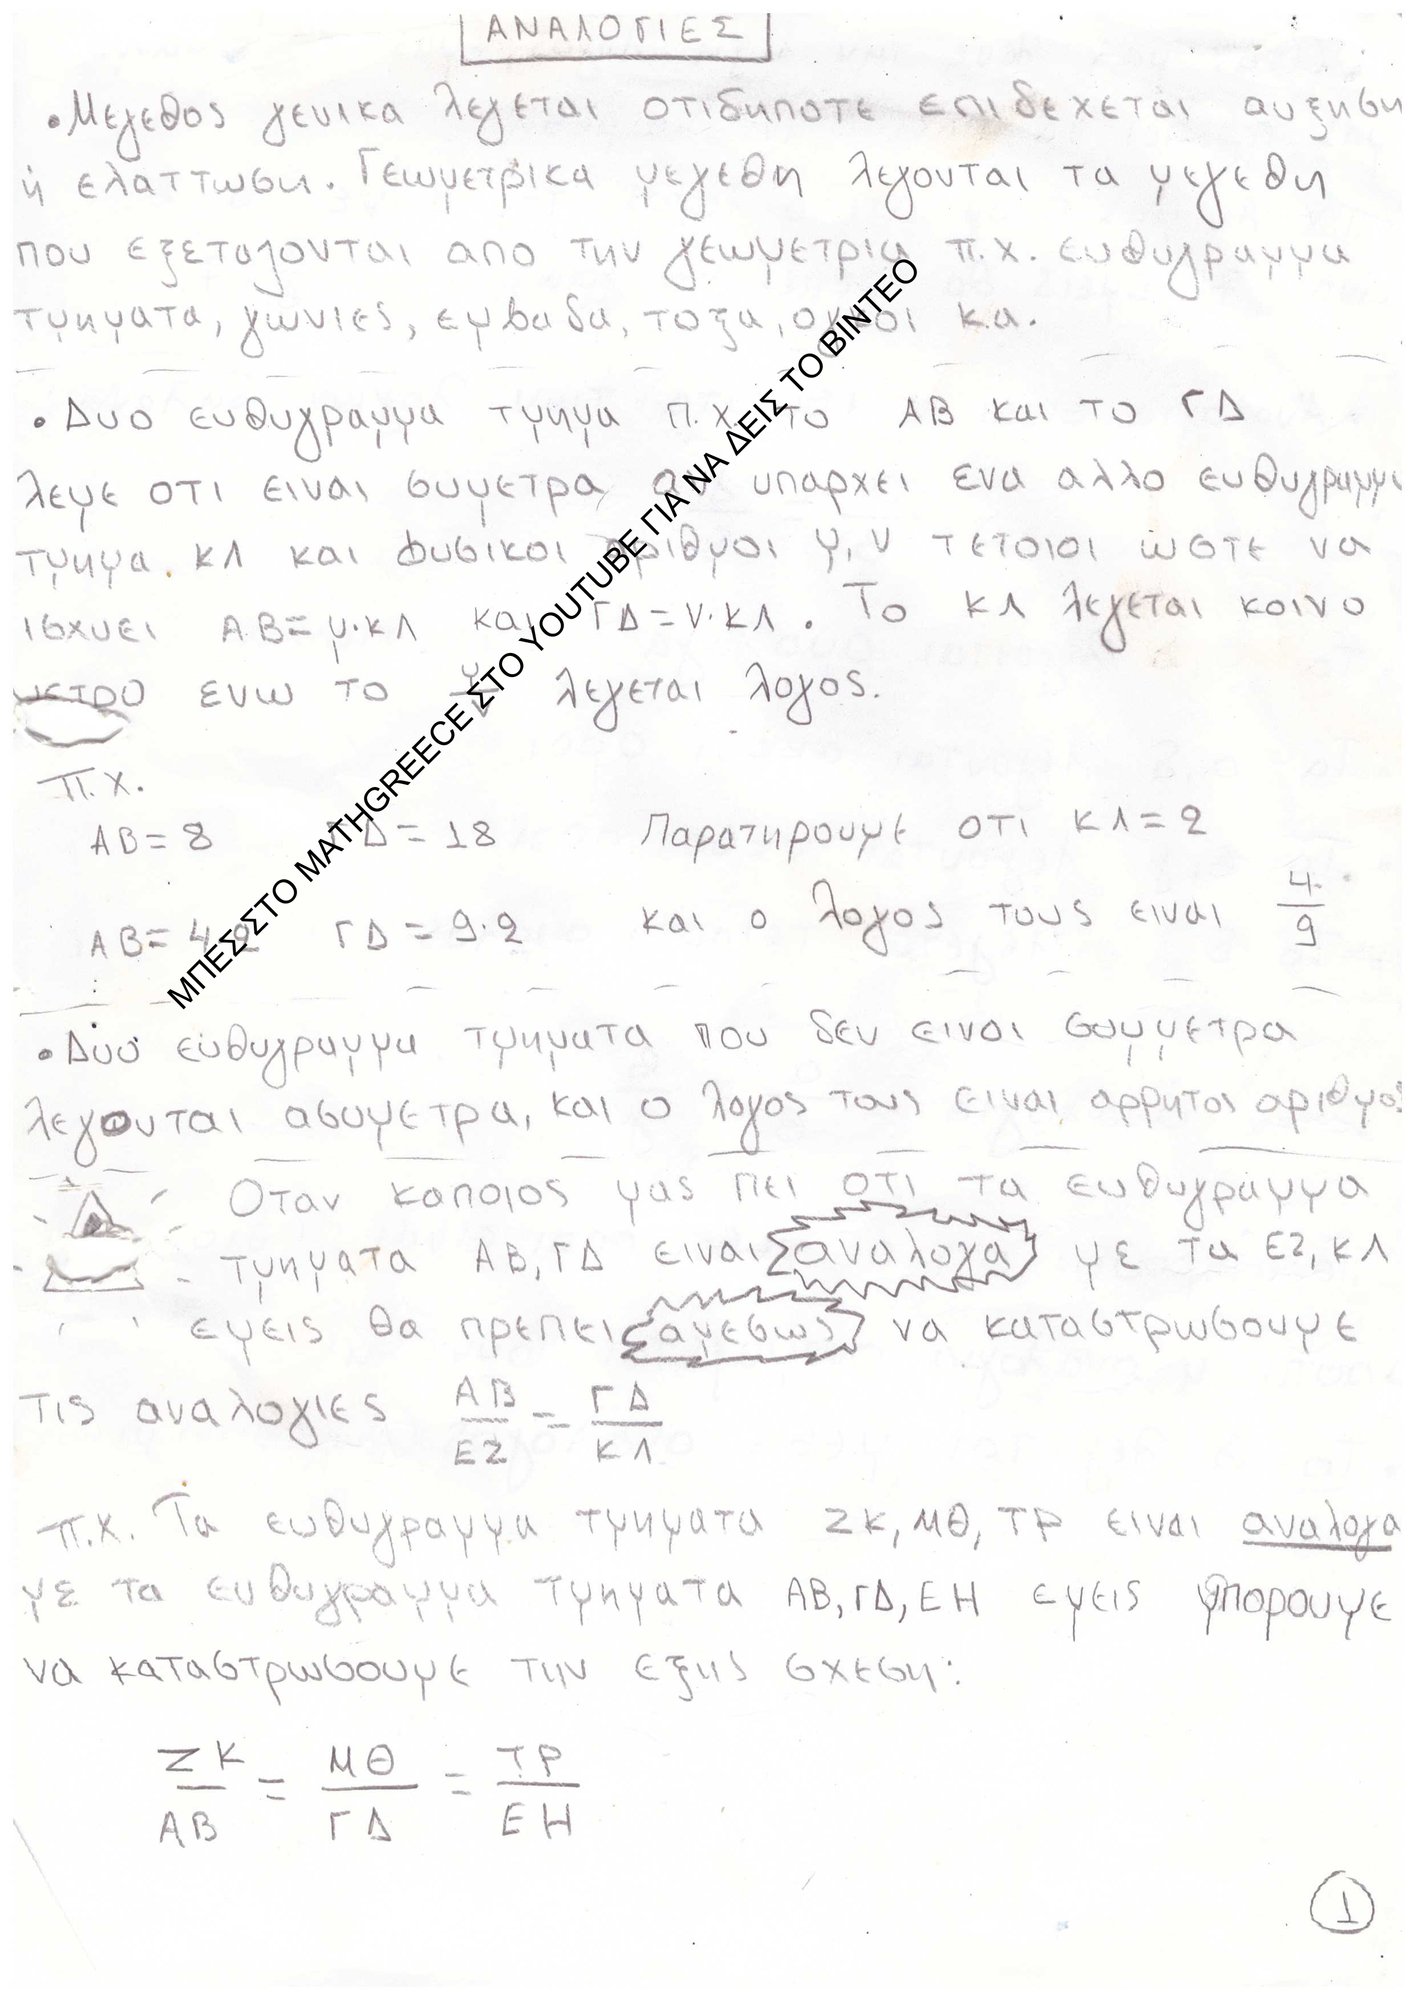 ΑΝΑΛΟΓΙΕΣ
• Μεγεθος γενικα λεγεται οτιδηποτε επιδεχεται αυξηση
ή ελαττωση. Γεωμετρικα μεγεθη λεγονται τα μεγεθη
που εξεταζονται απο την γεωμετρια π.χ. ευθυγραμμα
τμηματα, γωνιες, εμβαδα, τοξα, ογκοι κ.α.
• Δυο ευθυγραμμα τμημα π.χ. το ΑΒ και το ΓΔ
λεμε οτι ειναι συμετρα αν υπαρχει ενα αλλο ευθυγραμμο
τμημα ΚΛ και φυσικοι αριθμοι μ, ν τετοιοι ώστε να
ισχυει ΑΒ=μ·ΚΛ και ΓΔ=ν·ΚΛ. Το ΚΛ λεγεται κοινο
μετρο ενω το μ/ν λεγεται λογος.
Π.Χ.
ΑΒ=8 ΓΔ=18 Παρατηρουμε οτι ΚΛ=2
ΑΒ=4·2 ΓΔ=9·2 και ο λογος τους ειναι 4/9
• Δυο ευθυγραμμα τμηματα που δεν ειναι συμμετρα
λεγονται ασυμετρα, και ο λογος τους ειναι αρρητος αριθμος
Οταν καποιος μας πει οτι τα ευθυγραμμα
τμηματα ΑΒ, ΓΔ ειναι αναλογα με τα ΕΖ, ΚΛ
εμεις θα πρεπει αμεσως να καταστρωσουμε
τις αναλογιες ΑΒ/ΕΖ = ΓΔ/ΚΛ
π.χ. Τα ευθυγραμμα τμηματα ΖΚ, ΜΘ, ΤΡ ειναι αναλογα
με τα ευθυγραμμα τμηματα ΑΒ, ΓΔ, ΕΗ εμεις μπορουμε
να καταστρωσουμε την εξης σχεση:
ΖΚ/ΑΒ = ΜΘ/ΓΔ = ΤΡ/ΕΗ
1
ΜΠΕΣ ΣΤΟ MATHGREECE ΣΤΟ YOUTUBE ΓΙΑ ΝΑ ΔΕΙΣ ΤΟ ΒΙΝΤΕΟ